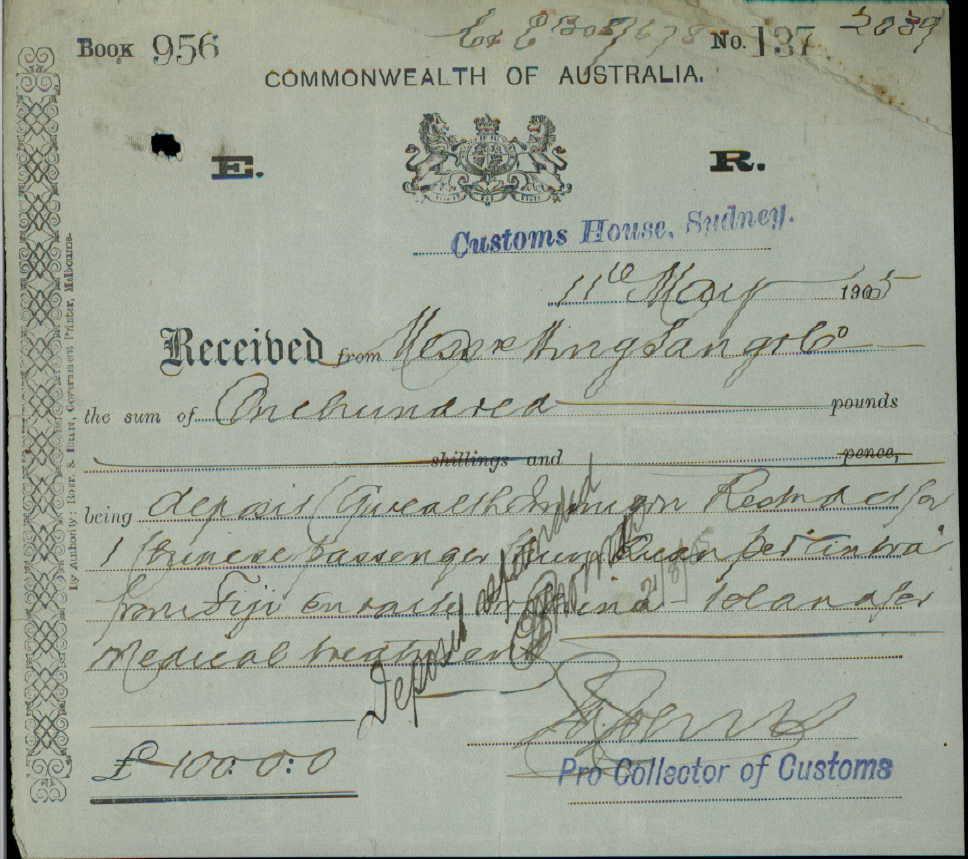 BOOK 956 No. 137 2039
COMMONWEALTH OF AUSTRALIA.
E. R.
Customs House, Sydney.
11th May 1905
Received from Messrs Wing Sang & Co
the sum of One hundred pounds
shillings and pence,
being deposit Immign Restn Act for
1 Chinese passenger per
from Fiji en route to China to land for
Medical treatment
Deposit
£100:0:0
Pro Collector of Customs
By Authority: Government Printer, Melbourne.